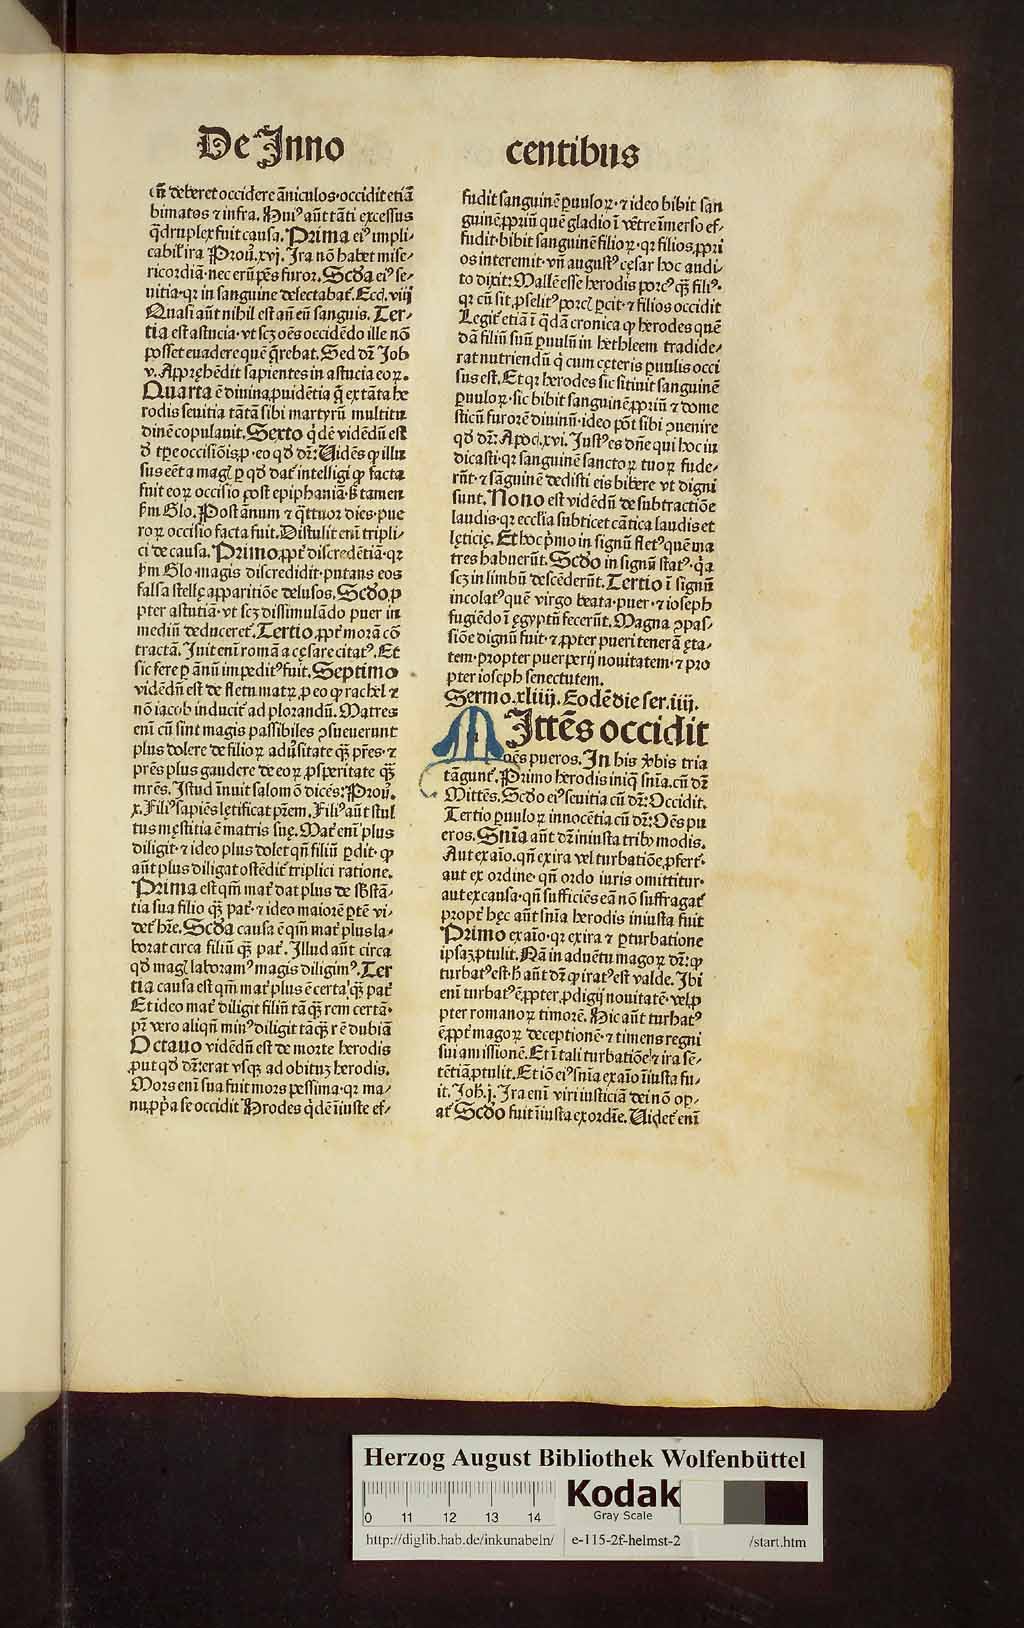 De Inno
centibus
cū deberet occidere āniculos·occidit etiā
bimatos ⁊ infra. Huiꝰ aūt tāti excessus
q̄druplex fuit causa. Prima eiꝰ impli-
cabil' ira Prou̇.xvj. Ira nō habet mise-
ricordiā·nec erūpēs furor. Scd̄a eiꝰ se-
uitia·qr in sanguine delectabat̄. Eccl̄. viij
Quasi aūt nihil est an̄ eū sanguis. Ter-
tia est astucia·vt scꝫ oēs occidēdo ille nō
posset euadere quē q̄rebat. Sed dr̄ Job
v. Appręhēdit sapientes in astucia eoꝝ.
Quarta ē diuina ꝓuidētia q̄ ex tāta he
rodis seuitia tātā sibi martyrū multitu
dinē copulauit. Sexto q̇dē vidēdū est
d̓ tꝑe occisiōis ꝓ eo qd̓ dr̄: Uidēs ꝙ illu
sus eēt a mag̓ ꝑ qd̓ dat̄ intelligi ꝙ facta
fuit eoꝝ occisio post epiphaniā·s̄ tamen
ẜm Glo. Post annum ⁊ q̄ttuor dies·pue
roꝝ occisio facta fuit. Distulit eni̅ tripli-
ci de causa. Primo ꝓpt̓ discredētiā·qr
ẜm Glo·magis discredidit·putans eos
falsa stellę apparitiōe delusos. Scd̓o ꝓ
pter astutiā·vt scꝫ dissimulādo puer in
mediū deduceret̄. Tertio ꝓpt̓ morā cō
tractā. Juit eni̅ romā a cęsare citatꝰ. Et
sic fere ꝑ annū impeditꝰ fuit. Septimo
vidēdū est de fletu matꝝ ꝓ eo ꝙ rachel ⁊
nō iacob inducit̄ ad plorandū. Matres
eni̅ cū sint magis passibiles ꝯsueuerunt
plus dolere de filioꝝ adu̓sitate q̄ꝫ pr̄es·⁊
pr̄es plus gaudere de eoꝝ ꝓsperitate q̄ꝫ
mr̄es. Istud īnuit salomō dicēs: Prou̇.
x. Filiꝰ sapiēs lętificat pr̄em. Filiꝰ aūt stul
tus męstitia ē matris suę. Mat̓ eni̅ plus
diligit·⁊ ideo plus dolet qn̄ filiū ꝑdit·ꝙ
aūt plus diligat ostēdit̄ triplici ratione.
Prima est qm̄ mat̓ dat plus de sb̄stā-
tia sua filio q̄ꝫ pat̓·⁊ ideo maiorē ꝑtē vi-
det̄ hr̄e. Scd̄a causa ē qm̄ mat̓ plus la-
borat circa filiū q̄ꝫ pat̓. Illud aūt circa
qd̓ mag̓ laboramꝰ magis diligimꝰ. Ter
tia causa est qm̄ mat̓ plus ē certa q̄ꝫ pat̓
Et ideo mat̓ diligit filiū tāq̄ꝫ rem certā·
pr̄ vero aliqn̄ minꝰ diligit tāq̄ꝫ rē dubiā
Octauo vidēdū est de morte herodis
ꝓut qd̓ dr̄: erat vsqꝫ ad obituꝫ herodis.
Mors eni̅ sua fuit mors pessima·qr ma-
nu ꝓpria se occidit Hrodes q̇dē īiuste ef-
fudit sanguinē ꝑuuloꝝ·⁊ ideo bibit san
guinē ꝓpriū quē gladio ī vētre īmerso ef-
fudit·bibit sanguinē filioꝝ·qr filios ꝓpri
os interemit·vn̄ augustꝰ cęsar hoc audi-
to dixit: Mallē esse herodis porcꝰ q̄ꝫ filiꝰ·
qr cū sit ꝓselitꝰ porcꝭ ꝑcit·⁊ filios occidit
Legit̄ etiā ī q̄dā cronica ꝙ herodes quē
dā filiū suū ꝑuulū in bethleem tradide-
rat nutriendū q̇ cum cęteris ꝑuulis occi
sus est. Et qr herodes sic sitiuit sanguinē
ꝑuuloꝝ·sic bibit sanguinē ꝓpriū ⁊ dome
sticū furorē diuinū·ideo pōt sibi ꝯuenire
qd̓ dr̄: Apoc.xvi. Justꝰ es dn̄e qui hoc iu
dicasti·qr sanguinē sanctoꝝ tuoꝝ fude-
rūt·⁊ sāguinē dedisti eis bibere vt digni
sunt. Nono est vidēdū de subtractiōe
laudis·qr ecclīa subticet cātica laudis et
lęticię. Et hoc p̓mo in signū fletꝰ quē ma
tres habuerūt. Scd̓o in signū statꝰ·q̓a
scꝫ in limbū descēderūt. Tertio ī signū
incolatꝰ quē virgo beata·puer·⁊ ioseph
fugiēdo ī ęgyptū fecerūt. Magna ꝯpas-
siōe dignū fuit·⁊ ꝓpter pueri tenerā ęta-
tem·propter puerperij nouitatem·⁊ pro
pter ioseph senectutem.
Sermo.xliiij. Eodē die ser.iiij.
MIttēs occidit
oēs pueros. In his v̓bis tria
tāgunt̄. Primo herodis iniq̄ sn̄ia.cū dr̄
Mittēs. Scd̓o eiꝰ seuitia cū dr̄: Occidit.
Tertio ꝑuuloꝝ innocētia cū dr̄: Oēs pu
eros. Sn̄ia aūt dr̄ iniusta tribꝰ modis.
Aut ex aīo. qn̄ ex ira vel turbatiōe ꝓfert̄·
aut ex ordine·qn̄ ordo iuris omittitur·
aut ex causa·qn̄ sufficiēs eā nō suffragat̄
propt̓ hęc aūt sn̄ia herodis iniusta fuit
Primo ex aīo·qr ex ira ⁊ ꝑturbatione
ipsaꝫ ꝓtulit. Nā in aduētu magoꝝ dr̄: ꝙ
turbatꝰ est·h̓ aūt dr̄ ꝙ iratꝰ est valde. Ibi
eni̅ turbatꝰ ē ꝓpter ꝓdigij nouitatē·vel ꝓ
pter romanoꝝ timorē. Hic aūt turbatꝰ
ē ꝓpt̓ magoꝝ deceptionē·⁊ timens regni
sui amissionē. Et ī tali turbatiōe ⁊ ira sē-
tētiā ꝓtulit. Et iō eiꝰ sn̄ia ex aīo īiusta fu-
it. Job.j. Ira eni̅ viri iusticiā dei nō op-
at̄ Scd̓o fuit īiusta ex ordīe. Uidet̄ eni̅
Herzog August Bibliothek Wolfenbüttel
Kodak
Gray Scale
0 11 12 13 14
http://diglib.hab.de/inkunabeln/ e-115-2f-helmst-2 /start.htm